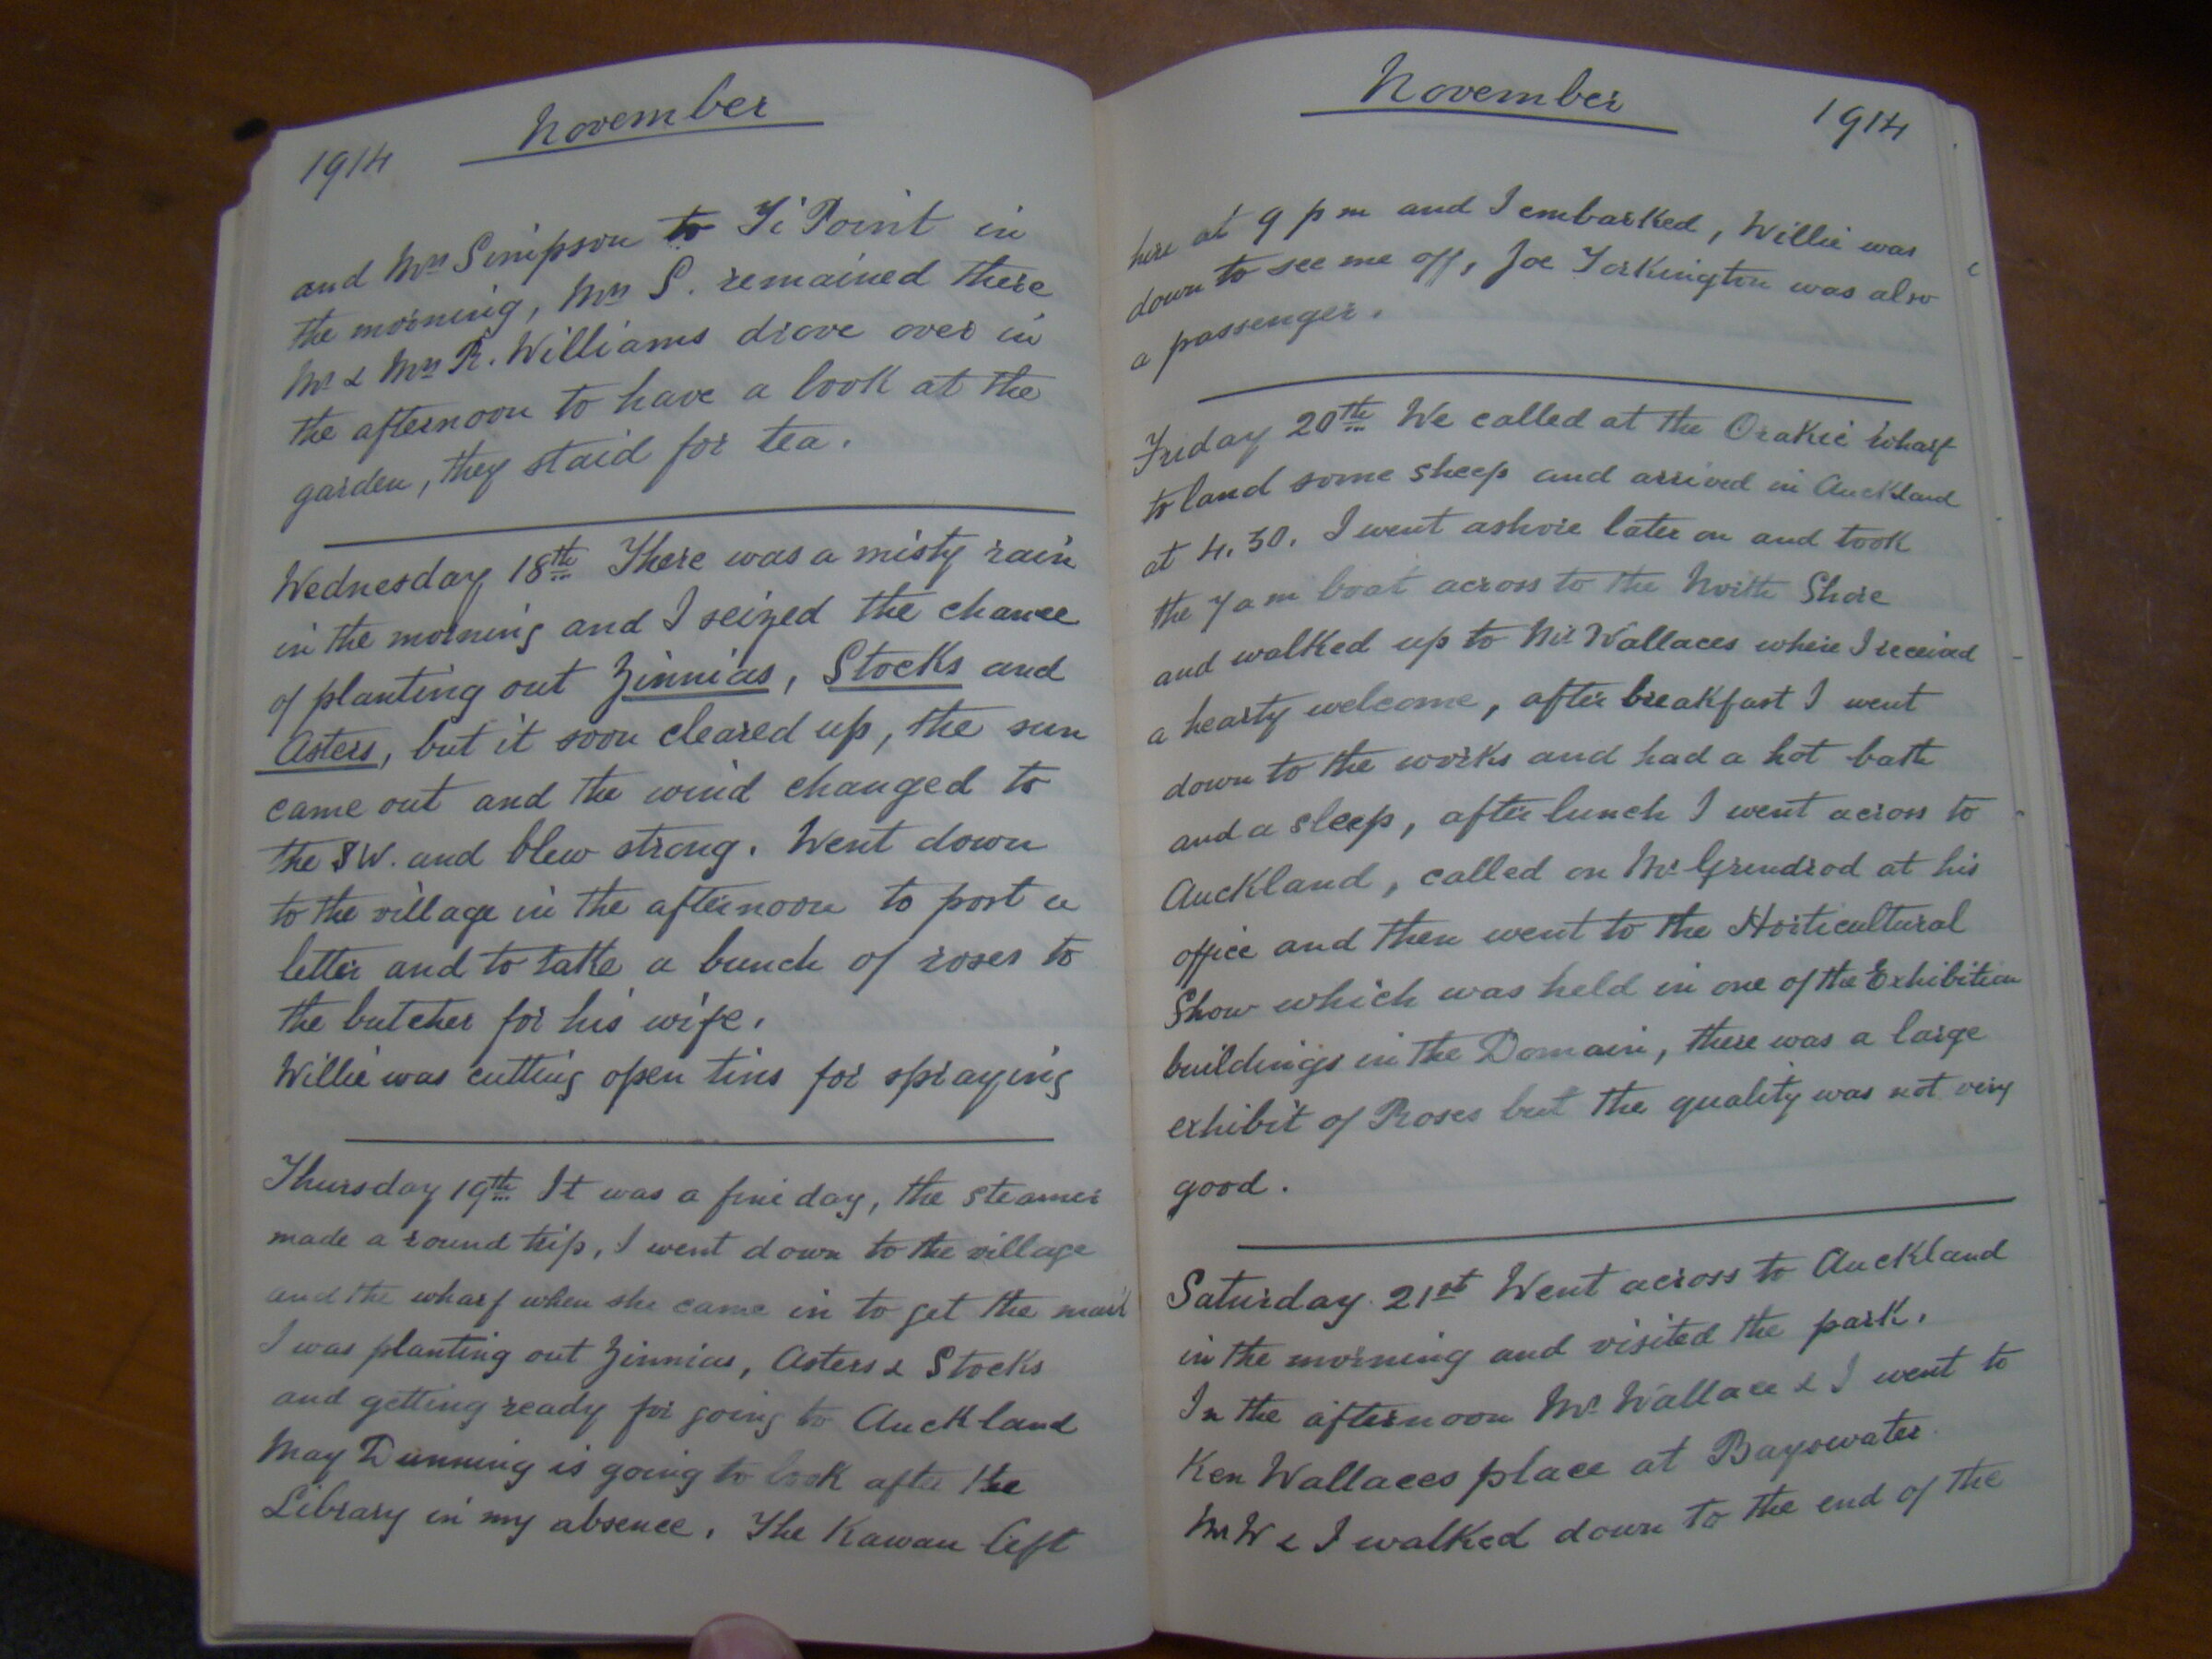 November
1914
and Mrs Simpson to Ti Point in
the morning, Mrs S. remained there
Mr & Mrs R. Williams drove over in
the afternoon to have a look at the
garden, they staid for tea.
Wednesday 18th There was a misty rain
in the morning and I seized the chance
of planting out Zinnias, Stocks and
Asters, but it soon cleared up, the sun
came out and the wind changed to
the SW. and blew strong. Went down
to the village in the afternoon to post a
letter and to take a bunch of roses to
the butcher for his wife.
Willie was cutting open tins for spraying
Thursday 19th It was a fine day, the steamer
made a round trip, I went down to the village
and the wharf when she came in to get the mail
I was planting out Zinnias, Asters & Stocks
and getting ready for going to Auckland
May Dunning is going to look after the
Library in my absence. The Kawau left
November
1914
here at 9 pm and I embarked, Willie was
down to see me off, Joe Torkington was also
a passenger.
Friday 20th We called at the Orakei wharf
to land some sheep and arrived in Auckland
at 4.30. I went ashore later on and took
the 7 am boat across to the North Shore
and walked up to Mr Wallaces where I received
a hearty welcome, after breakfast I went
down to the works and had a hot bath
and a sleep, after lunch I went across to
Auckland, called on Mr Grindrod at his
office and then went to the Horticultural
Show which was held in one of the Exhibition
buildings in the Domain, there was a large
exhibit of Roses but the quality was not very
good.
Saturday 21st Went across to Auckland
in the morning and visited the park.
In the afternoon Mr Wallace & I went to
Ken Wallaces place at Bayswater.
Mr W & I walked down to the end of the